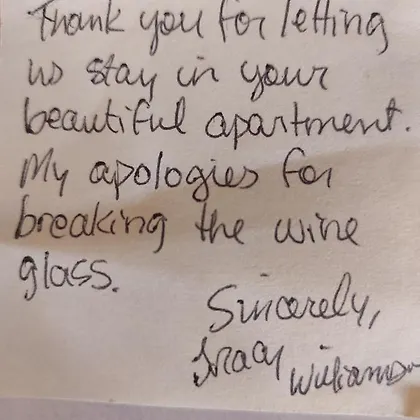 Thank you for letting
us stay in your
beautiful apartment.
My apologies for
breaking the wine
glass.
Sincerely,
Tracy Williamson